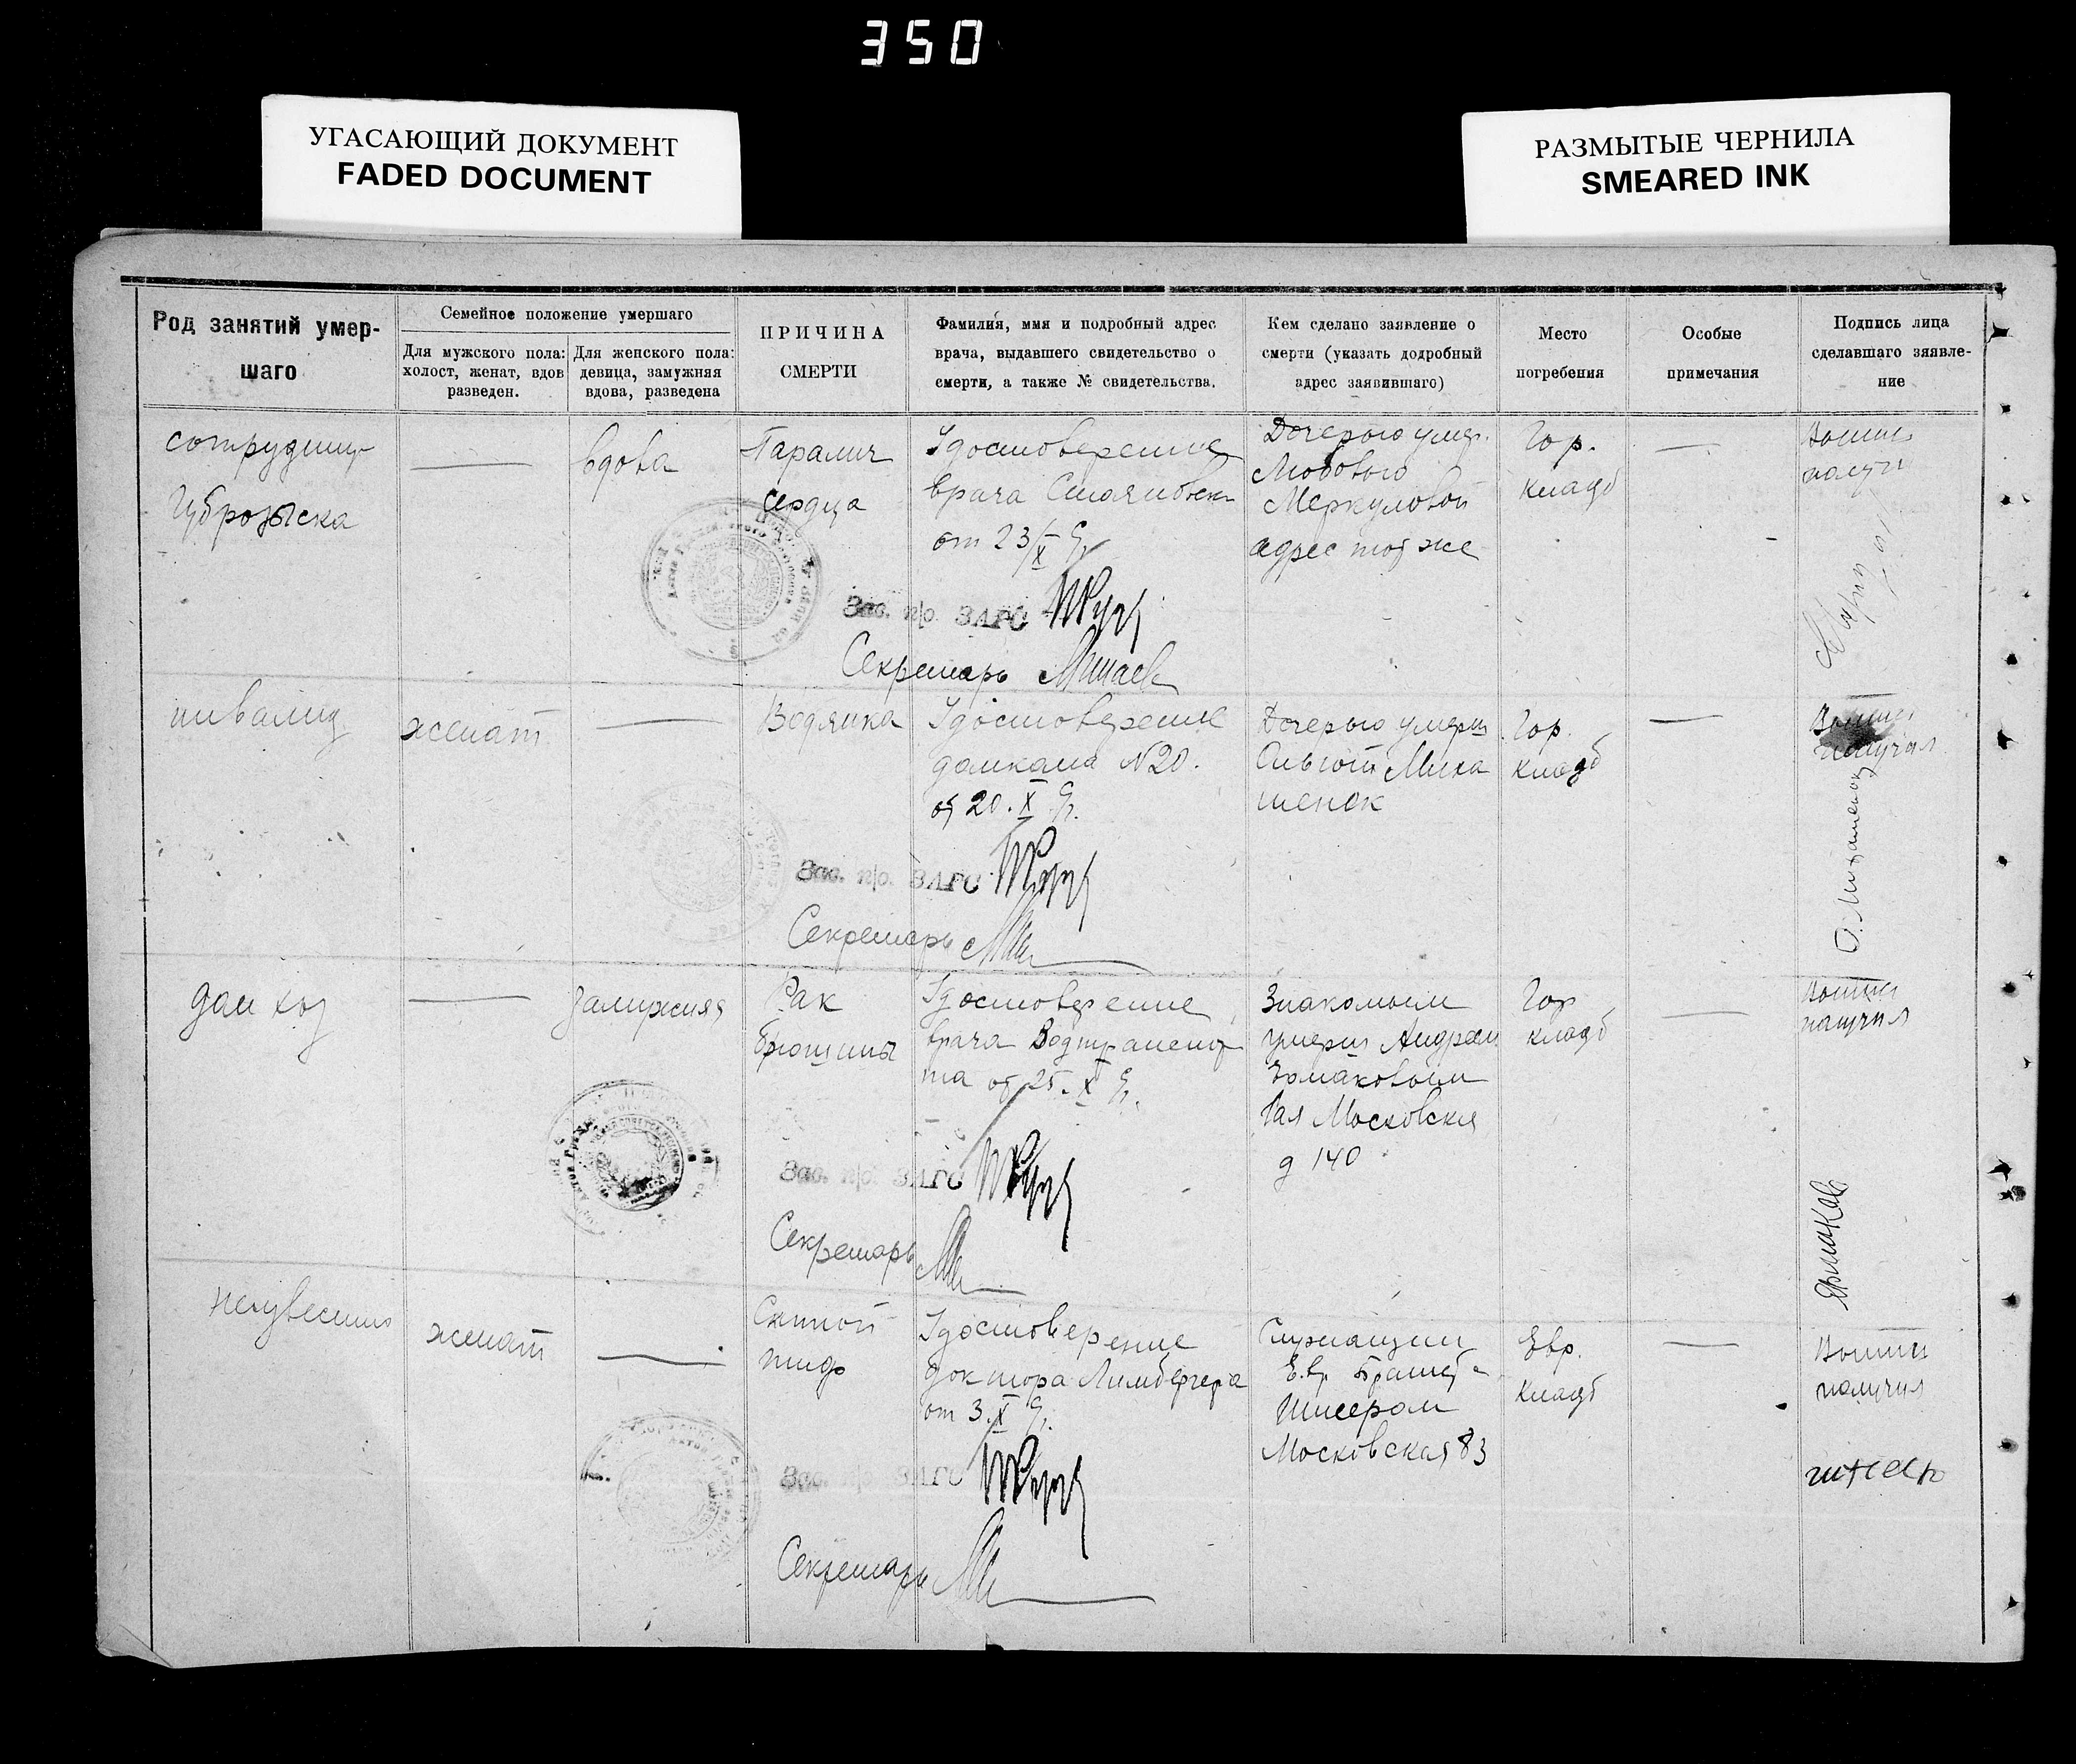 350
УГАСАЮЩИЙ ДОКУМЕНТ
FADED DOCUMENT
РАЗМЫТЫЕ ЧЕРНИЛА
SMEARED INK
Род занятий умер-
шаго
Семейное положение умершаго
Для мужского пола:
холост, женат, вдов
разведен.
Для женского пола:
девица, замужняя
вдова, разведена
ПРИЧИНА
СМЕРТИ
Фамилия, имя и подробный адрес
врача, выдавшего свидетельство о
смерти, а также № свидетельства.
Кем сделано заявление о
смерти (указать додробный
адрес заявившаго)
Место
погребения
Особые
примечания
Подпись лица
сделавшаго зяявле-
ние
сотрудниц
Губрозыска
—
вдова
Паралич
сердца
Удостоверение
врача
от 23/X
Дочерью умер.
Любовью
Меркуловой
адрес тот же
Гор.
кладб
—
получ
Зав. п/о. ЗАГС
Секретарь Минаев
инвалид
женат
—
Водянка
Удостоверение
домкома N20.
от 20. X
Дочерью умерш
Миха
шенок
Гор.
кладб
—
получил
О. Михашенок
Зав. п/о. ЗАГС
Секретарь
дом хоз
—
замужняя
Рак
брюшины
Удостоверение
врача
от 25. X
Знакомым
умерш Андреем
Ермаковым
Московская
д 140
Гор
кладб
—
получил
Ермаков
Зав. п/о. ЗАГС
Секретарь
неизвестно
женат
—
Сыпной
тиф
Удостоверение
доктора Лимбергера
от 3. X
Служащим
Евр.
Московская 83
Евр.
кладб
—
получил
Зав. п/о. ЗАГС
Секретарь